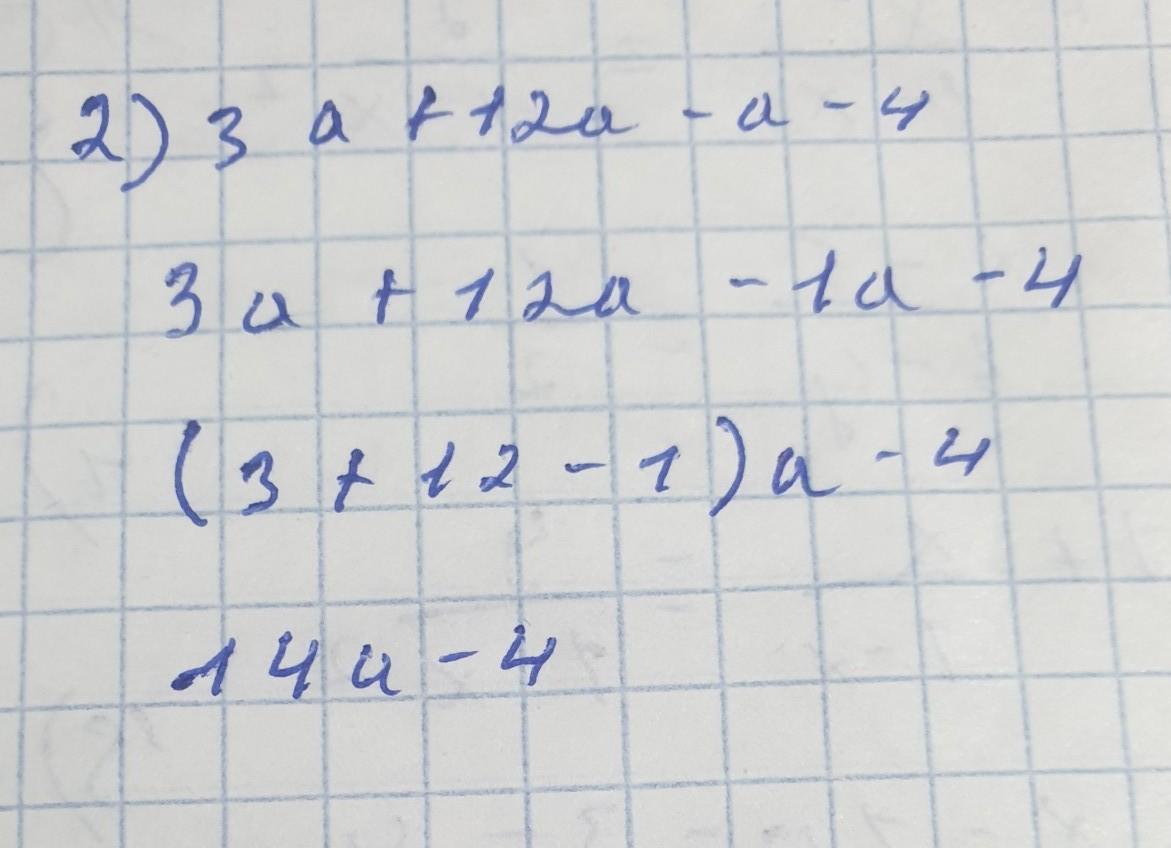 2) 3a + 12a - a - 4
3a + 12a - 1a - 4
(3 + 12 - 1)a - 4
14a - 4